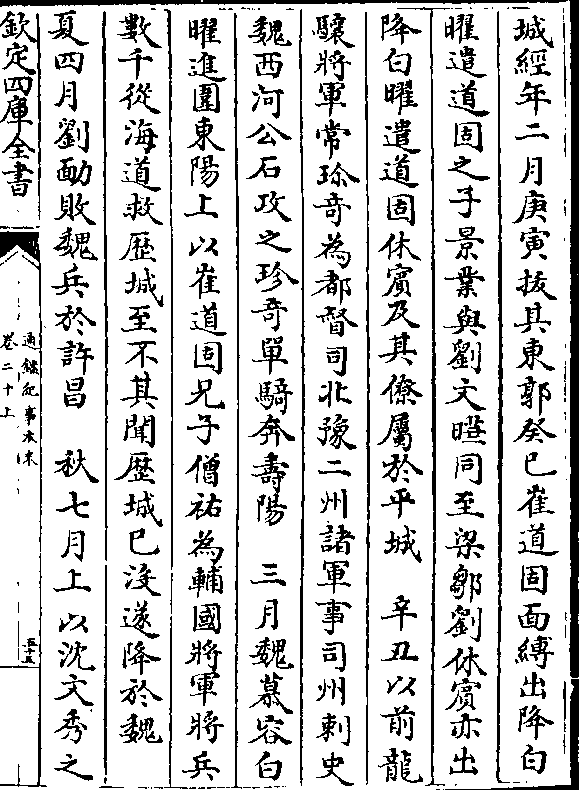 城經年二月庚寅拔其東郭癸巳崔道固面縛出降白
曜遣道固之子景業與劉文曄同至梁鄒劉休賓亦出
降白曜遣道固休賓及其僚屬於平城　辛丑以前龍
驤將軍常珍奇為都督司北豫二州諸軍事司州刺史
魏西河公石攻之珍奇單騎奔壽陽　三月魏慕容白
曜進圍東陽上以崔道固兄子僧祐為輔國將軍將兵
數千從海道救歷城至不其聞歷城已沒遂降於魏
夏四月劉勔敗魏兵於許昌　秋七月上以沈文秀之
欽定四庫全書
通鑑紀事本末
卷二十上
五十五